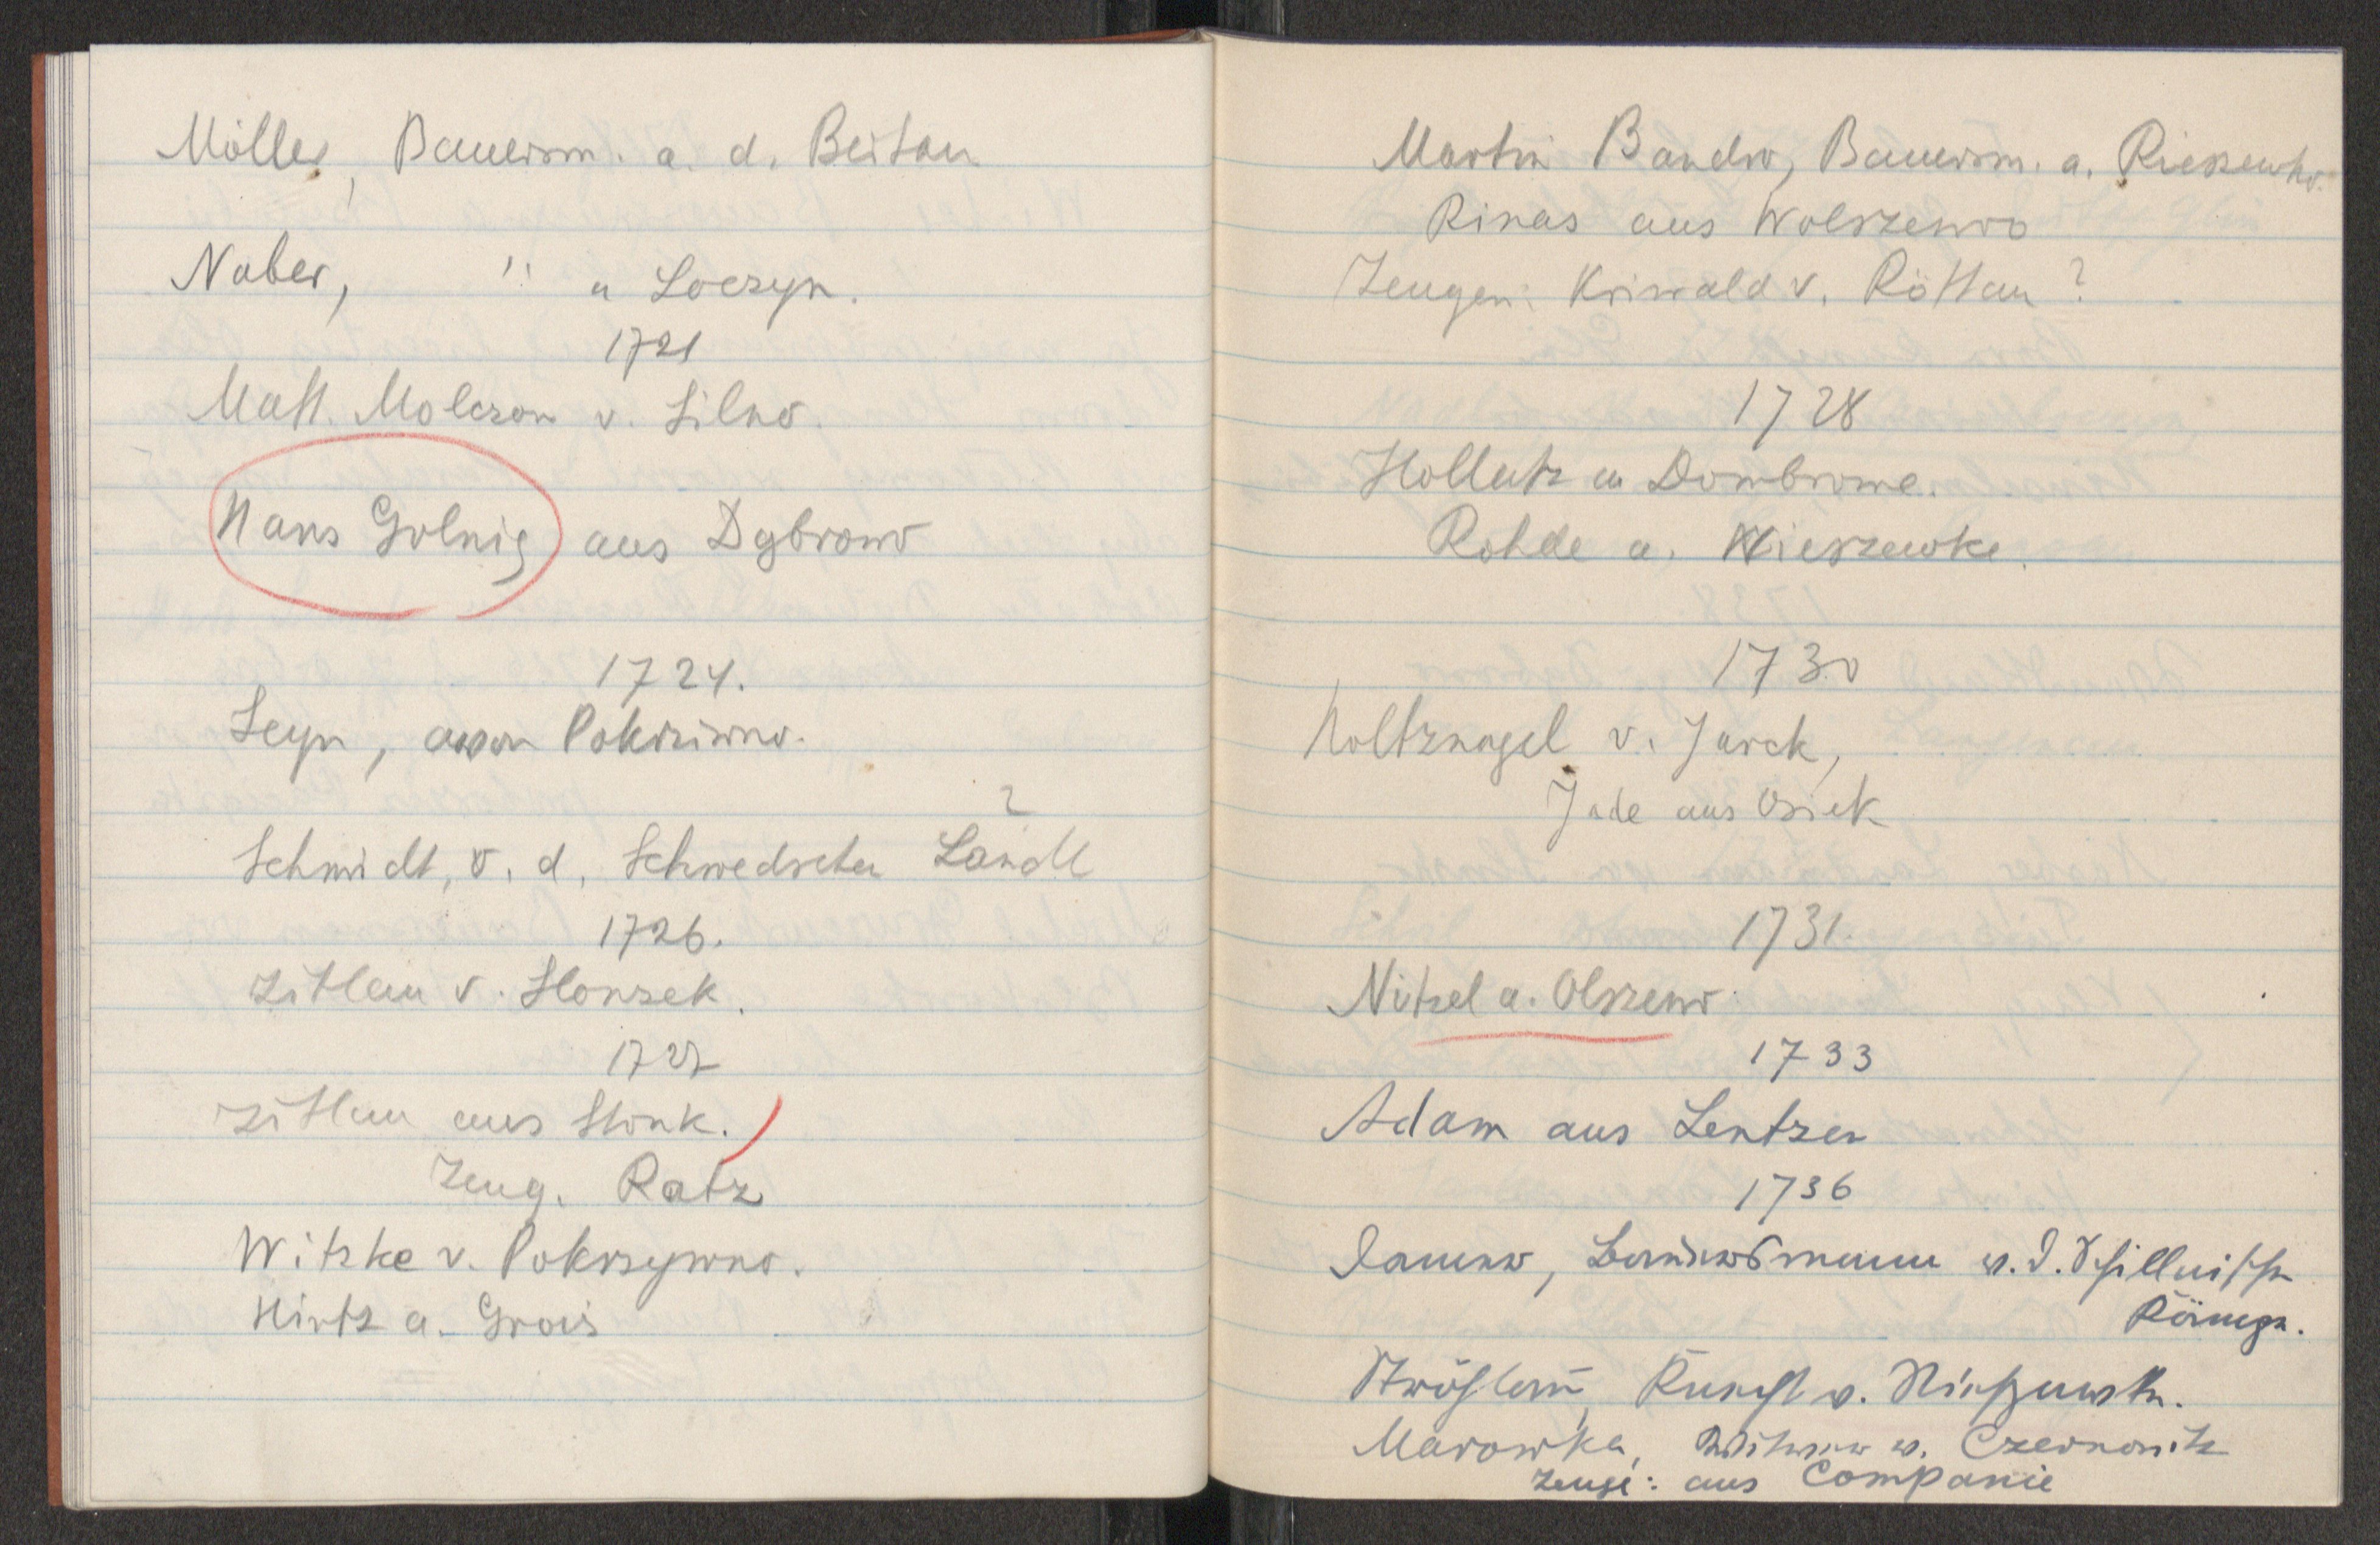 Möller, Bauersm. a. d. Beitau
Naber, " a Loczyn.
1721
Matt. Molczon v. Silno.
Hans Golnig aus Dąbrowo
1724.
Seyn, Pokrziwno.
?
Schmidt, v. d. Schwedschen Landt
1726.
Zittlau v. Slonzek.
1727
Zittlau aus Slonk.
Zeug. Ratz
Witzke v. Pokrzywno.
Hirtz a. Grois
Martin Bandro, Bauersm. a. Rieszewko.
Rinas aus Wolszewo
Zeugen: Kriwald v. Röttau ?
1728
Hollatz a Dombrowe.
Rohde a. Nieszewke.
1730
Holtznagel v. Jurck,
Jade aus Osiek
1731.
Nitzel a. Olszewo
1733
Adam aus Lentzen
1736
v. d. Schillnischen
Kämpn.
Knecht v. Nieszewken.
Marowka, v. Czernowitz
Zeuge: aus Companie